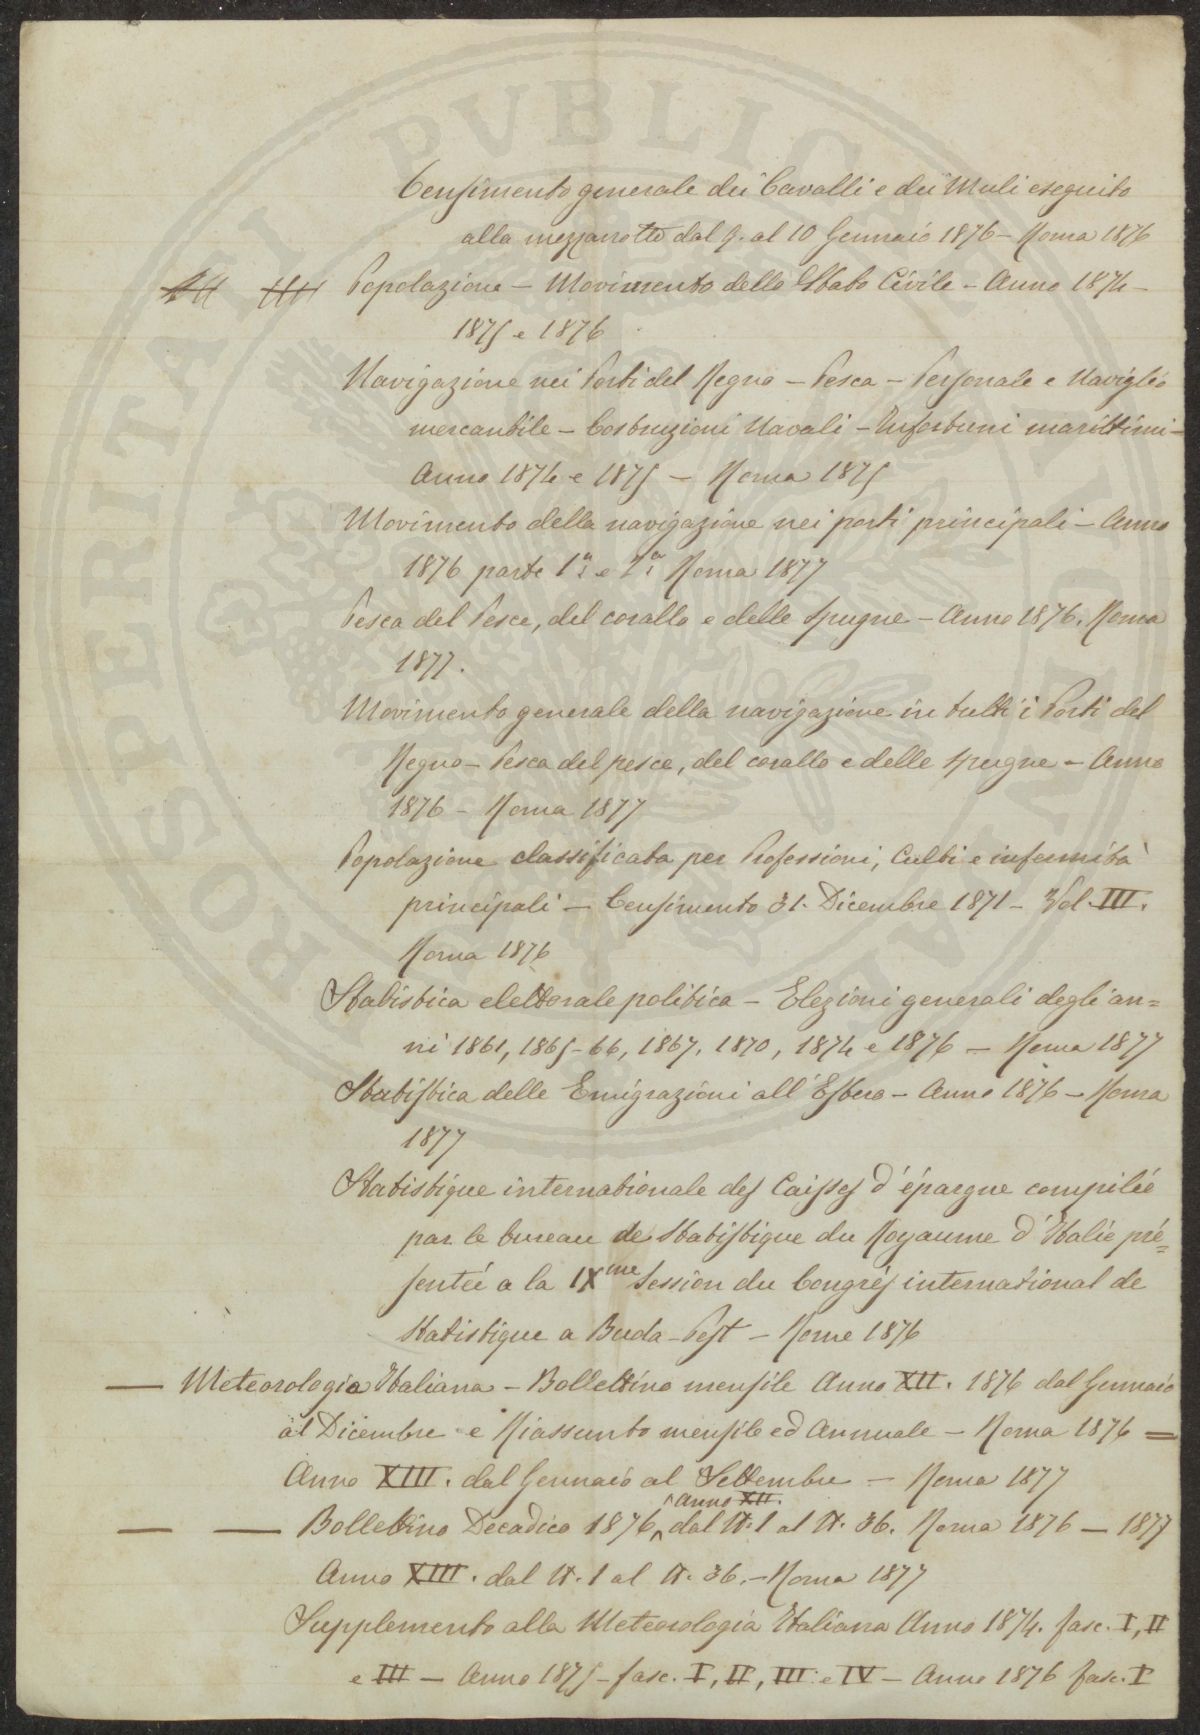 Censimento generale dei Cavalli e dei Muli eseguito
alla mezzanotte dal 9. al 10 Gennaio 1876 – Roma 1876
Popolazione – Movimento dello Stato Civile – Anno 1874 –
1875 e 1876
Navigazione nei Porti del Regno – Pesca – Personale e Naviglio
mercantile – Costruzioni Navali – Infortuni marittimi –
Anno 1874 e 1875 – Roma 1875
Movimento della navigazione nei porti principali – Anno
1876 parte 1ª e 2ª Roma 1877
Pesca del Pesce, del corallo e delle spugne – Anno 1876. Roma
1877.
Movimento generale della navigazione in tutti i Porti del
Regno – Pesca del pesce, del corallo e delle spugne – Anno
1876 – Roma 1877
Popolazione classificata per Professioni, Culti e infermità
principali – Censimento 31. Dicembre 1871 – Vol. III.
Roma 1876
Statistica elettorale politica – Elezioni generali degli an=
ni 1861, 1865-66, 1867, 1870, 1874 e 1876 – Roma 1877
Statistica delle Emigrazioni all'Estero – Anno 1876 – Roma
1877
Statistique internationale des Caisses d'épargne compilée
par le bureau de Statistique du Royaume d'Italie pré=
sentée a la IXme Session du Congrés international de
Statistique a Buda-Pest – Rome 1876
— Meteorologia Italiana – Bollettino mensile Anno XII. 1876 dal Gennaio
al Dicembre e Riassunto mensile ed Annuale – Roma 1876 =
Anno XIII. dal Gennaio al Settembre – Roma 1877
Anno XII.
— — Bollettino Decadico 1876, dal N. 1 al N. 36. Roma 1876 – 1877
Anno XIII. dal N. 1 al N. 36. – Roma 1877
Supplemento alla Meteorologia Italiana Anno 1874. fasc. I, II
e III – Anno 1875 – fasc. I, II, III e IV – Anno 1876 fasc. I
PROSPERITATI PVBLICAE